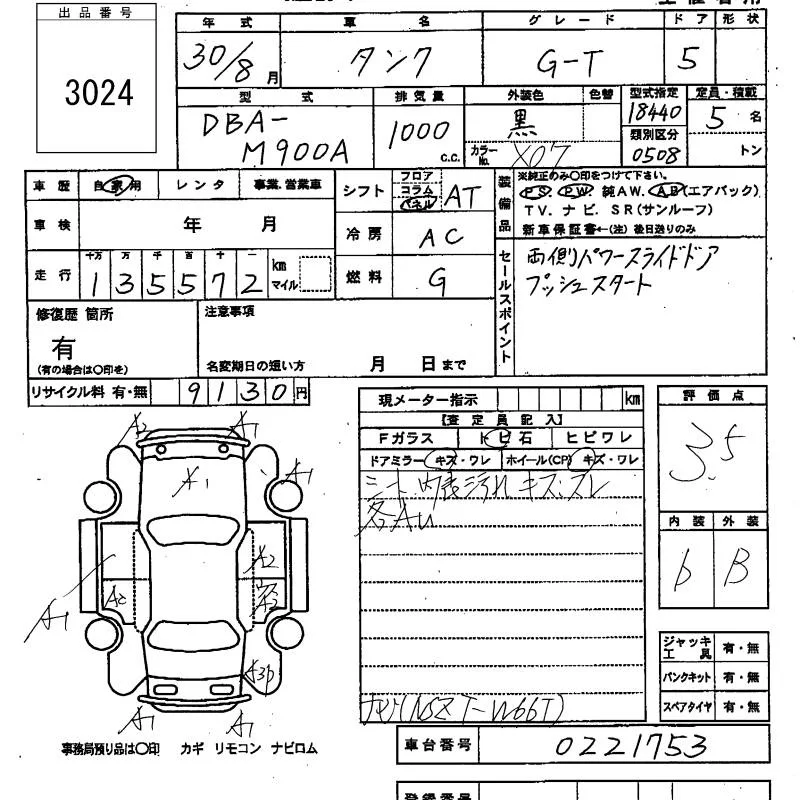 出品番号
3024
年式 車名 グレード ドア 形状
30/8月 タンク G-T 5
型式 排気量 外装色 色替 型式指定 定員・積載
DBA-M900A 1000 c.c. 黒 カラーNo. X07 18440 5名
類別区分 0508 トン
車歴 自家用 レンタ 事業.営業車
シフト フロア コラム パネル AT
装備品 ※純正のみ〇印をつけて下さい。
P.S. P.W. 純AW. A.B(エアバック)
TV. ナビ. SR(サンルーフ)
新車保証書←(注)後日送りのみ
車検 年 月
冷房 AC
走行 十万 万 千 百 十 一 km マイル
135572
燃料 G
セールスポイント
両側パワースライドドア
プッシュスタート
修復歴 箇所
有
(有の場合は〇印を)
注意事項
名変期日の短い方 月 日まで
リサイクル料 有・無 9130円
現メーター指示 km
【査定員記入】
Fガラス トビ石 ヒビワレ
ドアミラー キズ・ワレ ホイール(CP) キズ・ワレ
シート 内張汚れ キズ.スレ
各AU
ナビ(NSZT-W66T)
評価点
3.5
内装 外装
b B
ジャッキ工具 有・無
パンクキット 有・無
スペアタイヤ 有・無
A2 A1
A1 A1
A2
A2 A2
A1
A3P
A1 A1
事務局預り品は〇印 カギ リモコン ナビロム
車台番号 0221753
登録番号